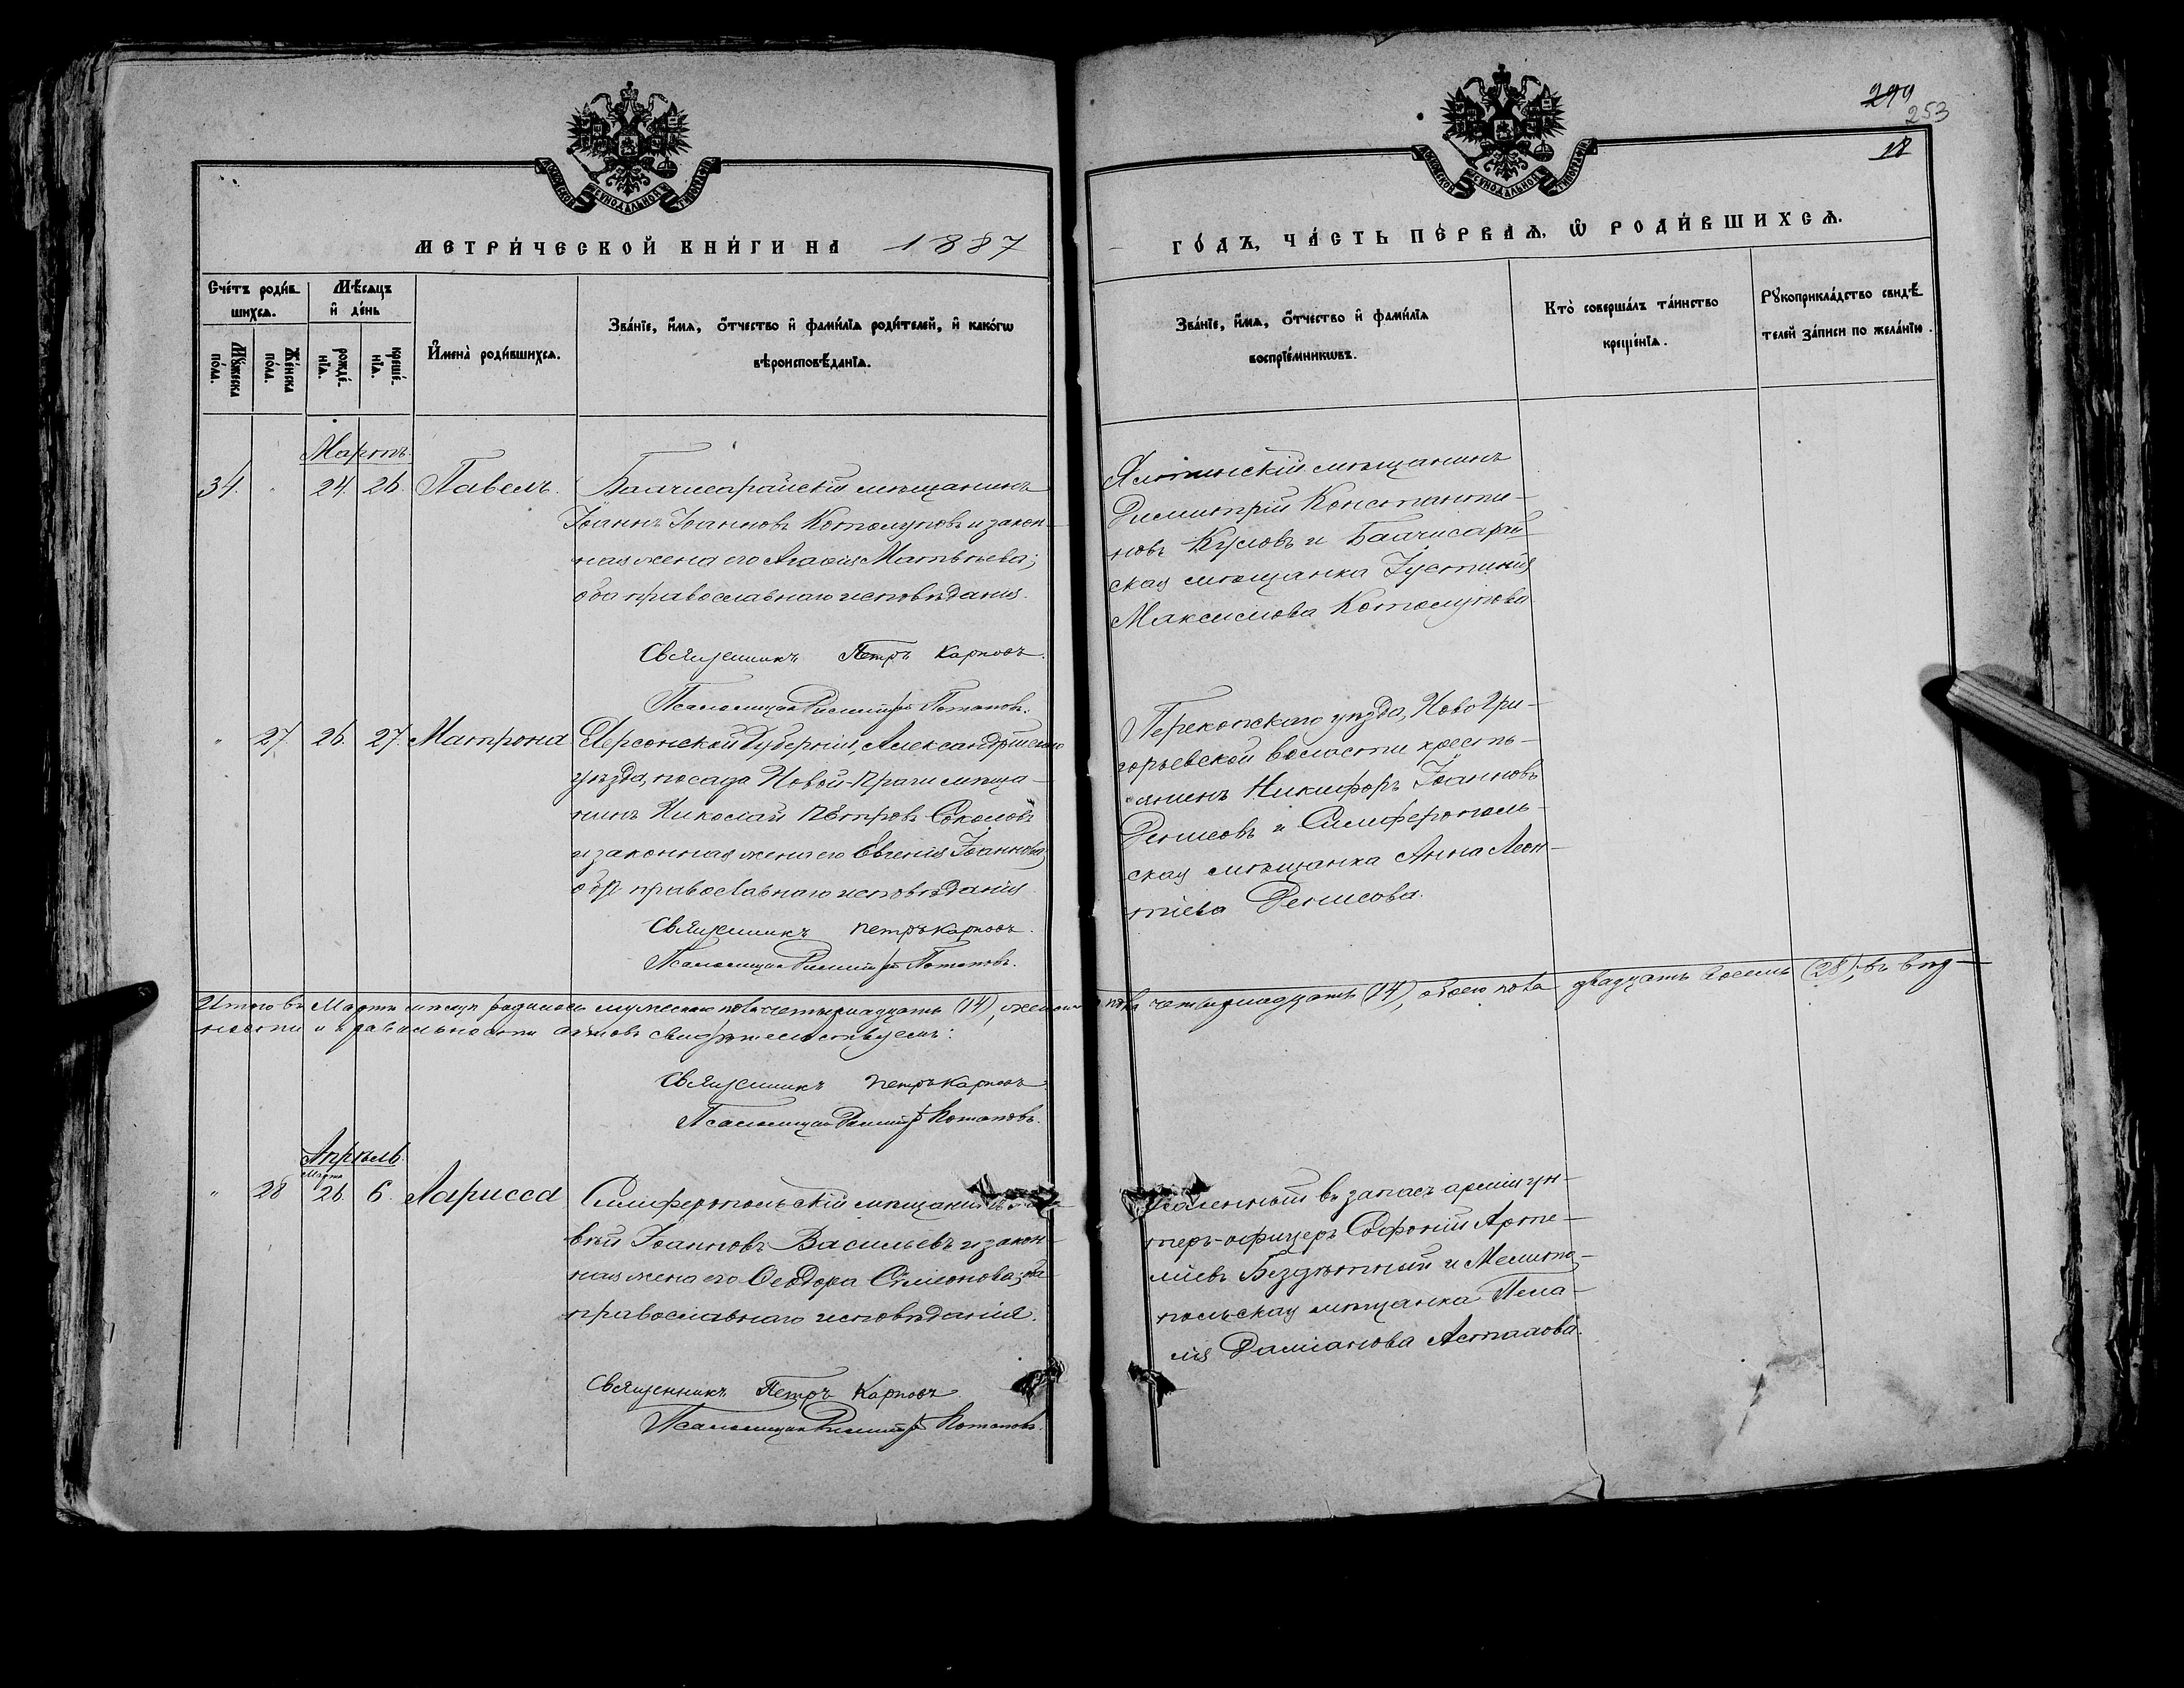 299
253
18
МОСКОВСКОЙ СѴНОДАЛЬНОЙ ТИПОГРАФІИ
МОСКОВСКОЙ СѴНОДАЛЬНОЙ ТИПОГРАФІИ
МЕТРИ́ЧЕСКОЙ КНИ́ГИ НА 1887
ГО́ДЪ, ЧА́СТЬ ПЕ́РВАѦ, Ѡ҆ РОДИ́ВШИХСѦ.
Сче́тъ роди́в-
шихсѧ.
Мѣ́сѧцъ
и҆ де́нь
Мꙋ́жеска
по́ла.
Же́нска
по́ла.
рожде́-
нїѧ.
креще́-
нїѧ.
И҆мена̀ роди́вшихсѧ.
Зва́нїе, и҆́мѧ, ѻ҆́тчество и҆ фами́лїѧ роди́телей, и҆ како́гѡ
вѣроисповѣ́данїѧ.
Зва́нїе, и҆́мѧ, ѻ҆́тчество и҆ фами́лїѧ
воспрїе́мникѡвъ.
Кто̀ соверша́лъ та́инство
креще́нїѧ.
Рꙋкоприкла́дство свидѣ́-
телей за́писи по жела́нїю.
Мартъ.
34. 24. 26. Павелъ.
Бахчисарайскій мѣщанинъ
Іоаннъ Іоанновъ Котолуповъ и закон-
ная жена его Агаѳія Матвѣева;
оба православнаго исповѣданія.
Священникъ Петръ Карповъ.
Псаломщикъ Димитрій Потаповъ.
Ялтинскій мѣщанинъ
Димитрій Константи-
новъ Кусловъ и Бахчисарай-
ская мѣщанка Іустинія
Максимова Котолупова
" 27. 26. 27. Матрона
Херсонской Губерніи, Александрійскаго
уѣзда, посада Новой-Праги мѣща-
нинъ Николай Пѣтровъ Соколовъ
и законная жена его Евгенія Іоаннова;
оба православнаго исповѣданія.
Священникъ Петръ Карповъ.
Псаломщикъ Димитрій Потаповъ.
Перекопскаго уѣзда, Ново Гри-
горьевской волости кресть-
янинъ Никифоръ Іоанновъ
Денисовъ и Симферополь-
ская мѣщанка Анна Леон-
тіева Денисова.
Итого въ Мартѣ мѣсяцѣ родилось мужескаго пола четырнадцать (14), женскаго пола четырнадцать (14), обоего пола двадцать восемь (28); въ вѣр-
ности и правильности актовъ свидѣтельствуемъ:
Священникъ Петръ Карповъ
Псаломщикъ Димитрій Потаповъ.
Апрѣль.
Марта
" 28 26. 6. Ларисса
Симферопольскій мѣщанинъ
вѣй Іоанновъ Васильевъ и закон-
ная жена его Ѳеодора Симонова; оба
православнаго исповѣданія.
Священникъ Петръ Карповъ
Псаломщикъ Димитрій Потаповъ.
въ запасъ арміи ун-
теръ-офицеръ Софоній Арте-
міевъ Бездѣтный и Мелито-
польская мѣщанка Пела-
гія Даміанова Астахова.